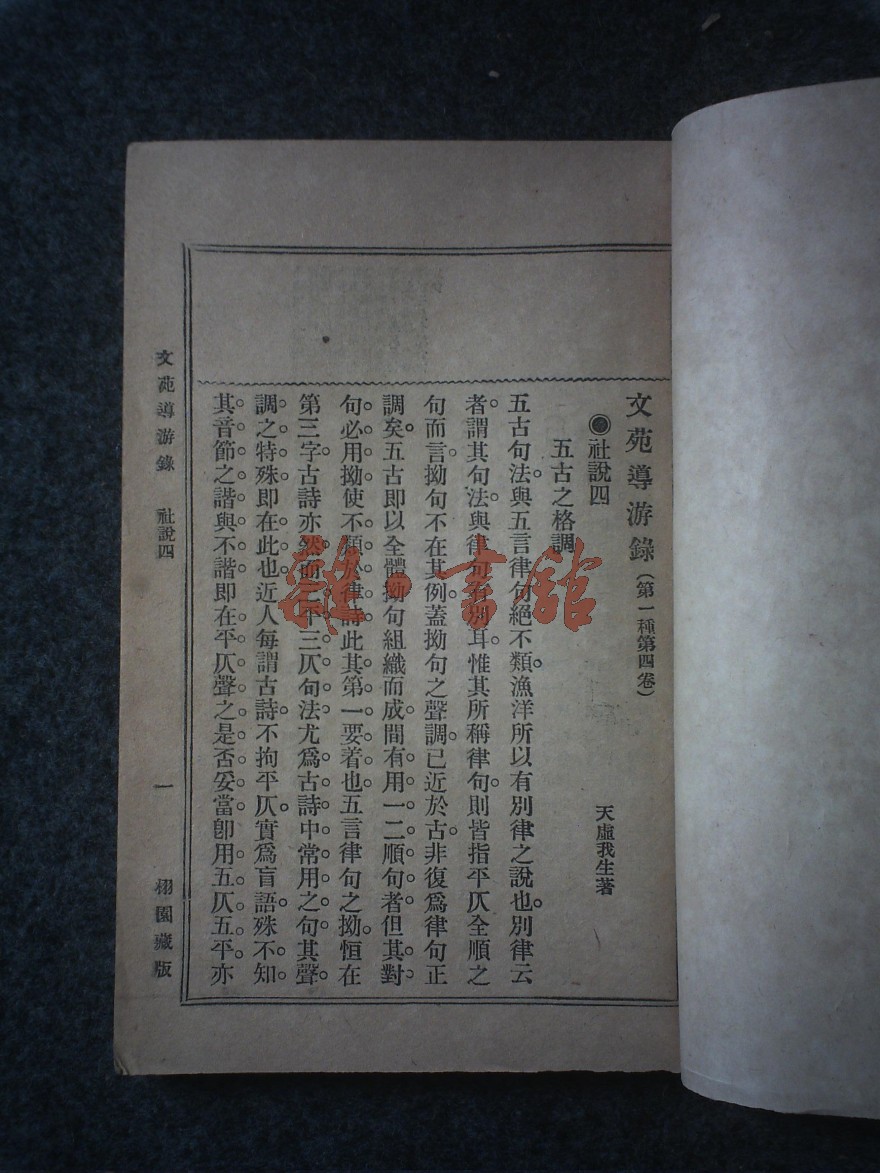 文苑導游錄(第一種第四卷)
社說四 天虛我生著
五古之格調
五古句法與五言律句絕不類漁洋所以有別律之說也別律云
者謂其句法與律句有別耳惟其所稱律句則皆指平仄全順之
句而言拗句不在其例蓋拗句之聲調已近於古非復爲律句正
調矣五古即以全體拗句組織而成間有用一二順句者但其對
句必用拗使不類於律詩此其第一要着也五言律句之拗恒在
第三字古詩亦然而二平三仄句法尤爲古詩中常用之句其聲
調之特殊即在此也近人每謂古詩不拘平仄實爲盲語殊不知
其音節之諧與不諧即在平仄聲之是否妥當卽用五仄五平亦
文苑導游錄 社說四 一 栩園藏版
雜·書館